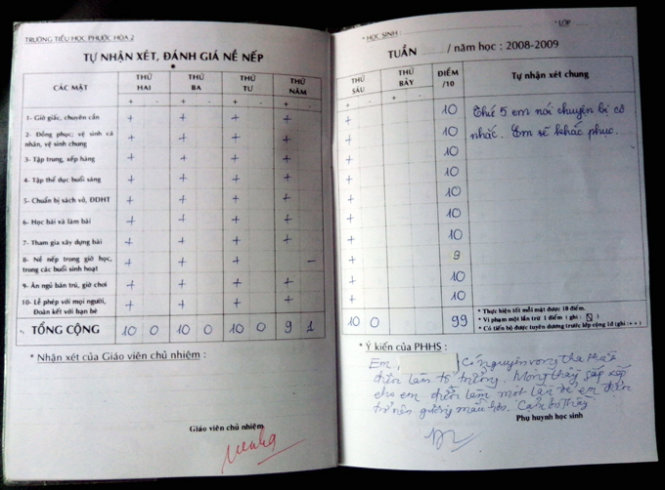 TRƯỜNG TIỂU HỌC PHƯỚC HÒA 2
TỰ NHẬN XÉT, ĐÁNH GIÁ NỀ NẾP
CÁC MẶT
THỨ HAI
THỨ BA
THỨ TƯ
THỨ NĂM
+ - + - + - + -
1- Giờ giấc, chuyên cần + + + +
2- Đồng phục, vệ sinh cá
nhân, vệ sinh chung + + + +
3- Tập trung, xếp hàng + + + +
4- Tập thể dục buổi sáng + + + +
5- Chuẩn bị sách vở, ĐDHT + + + +
6- Học bài và làm bài + + + +
7- Tham gia xây dựng bài + + + +
8- Nề nếp trong giờ học,
trong các buổi sinh hoạt + + + -
9- Ăn ngủ bán trú, giờ chơi + + + +
10- Lễ phép với mọi người,
Đoàn kết với bạn bè + + + +
TỔNG CỘNG 10 0 10 0 10 0 9 1
* Nhận xét của Giáo viên chủ nhiệm :
Giáo viên chủ nhiệm
* HỌC SINH :
* LỚP
TUẦN / năm học : 2008-2009
THỨ SÁU
THỨ BẢY
ĐIỂM /10
Tự nhận xét chung
+ - + -
+ 10 Thứ 5 em nói chuyện bị cô
+ 10 nhắc. Em sẽ khắc phục.
+ 10
+ 10
+ 10
+ 10
+ 10
+ 9
+ 10
+ 10
10 0 99
* Thực hiện tốt mỗi mặt được 10 điểm.
* Vi phạm một lần trừ 1 điểm ( ghi : )
* Có tiến bộ được tuyên dương trước lớp cộng 1đ (ghi : + )
* Ý kiến của PHHS :
Em Có nguyện vọng tha thiết
được làm tổ trưởng. Mong thầy sắp xếp
cho em được làm một lần để em được
trở nên gương mẫu hơn. Cảm ơn Thầy
Phụ huynh học sinh